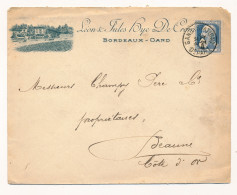 Léon & Jules Hye De Crom
BORDEAUX-GAND
GAND
Messieurs Champy Père & Cie
propriétaires,
Beaune
Côte d'Or